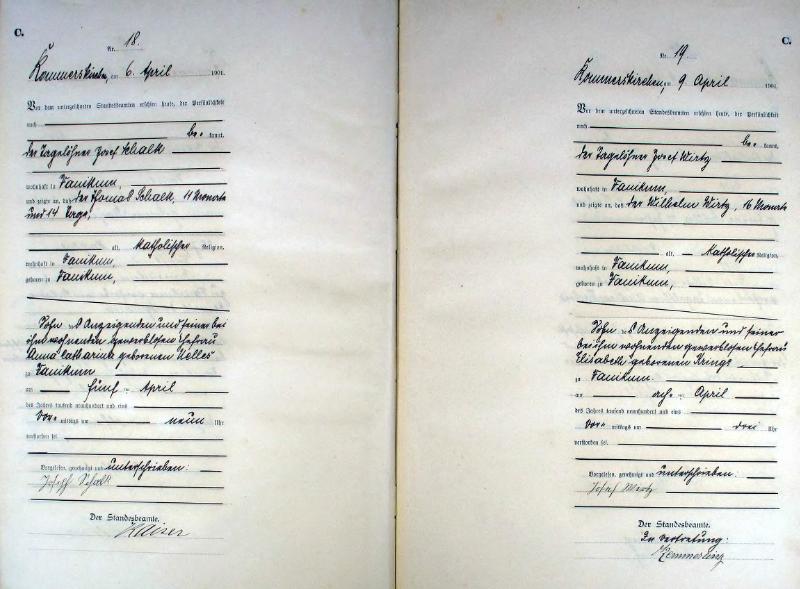 C.
Nr. 18.
Rommerskirchen, am 6. April 1901.
Vor dem unterzeichneten Standesbeamten erschien heute, der Persönlichkeit
nach
be- kannt,
der Tagelöhner Josef Schalk
wohnhaft in Vanikum,
und zeigte an, daß der Thomas Schalk, 11 Monate
und 14 Tage,
alt, katholischer Religion,
wohnhaft in Vanikum,
geboren zu Vanikum,
Sohn des Anzeigenden und seiner bei
ihm wohnenden gewerblosen Ehefrau
Anna Catharina geborenen Kelles
zu Vanikum
am fünf ten April
des Jahres tausend neunhundert und eins
Vor- mittags um neun Uhr
verstorben sei.
Vorgelesen, genehmigt und unterschrieben:
Joseph Schalk
Der Standesbeamte.
C.
Nr. 19
Rommerskirchen, am 9 April 1901.
Vor dem unterzeichneten Standesbeamten erschien heute, der Persönlichkeit
nach
be- kannt,
der Tagelöhner Josef Wirtz
wohnhaft in Vanikum,
und zeigte an, daß der Wilhelm Wirtz, 16 Monate
alt, katholischer Religion,
wohnhaft in Vanikum,
geboren zu Vanikum,
Sohn des Anzeigenden und seiner
bei ihm wohnenden gewerblosen Ehefrau
Elisabeth geborenen Krings
zu Vanikum
am ach ten April
des Jahres tausend neunhundert und eins
Vor- mittags um drei Uhr
verstorben sei.
Vorgelesen, genehmigt und unterschrieben:
Josef
Der Standesbeamte.
In Vertretung: